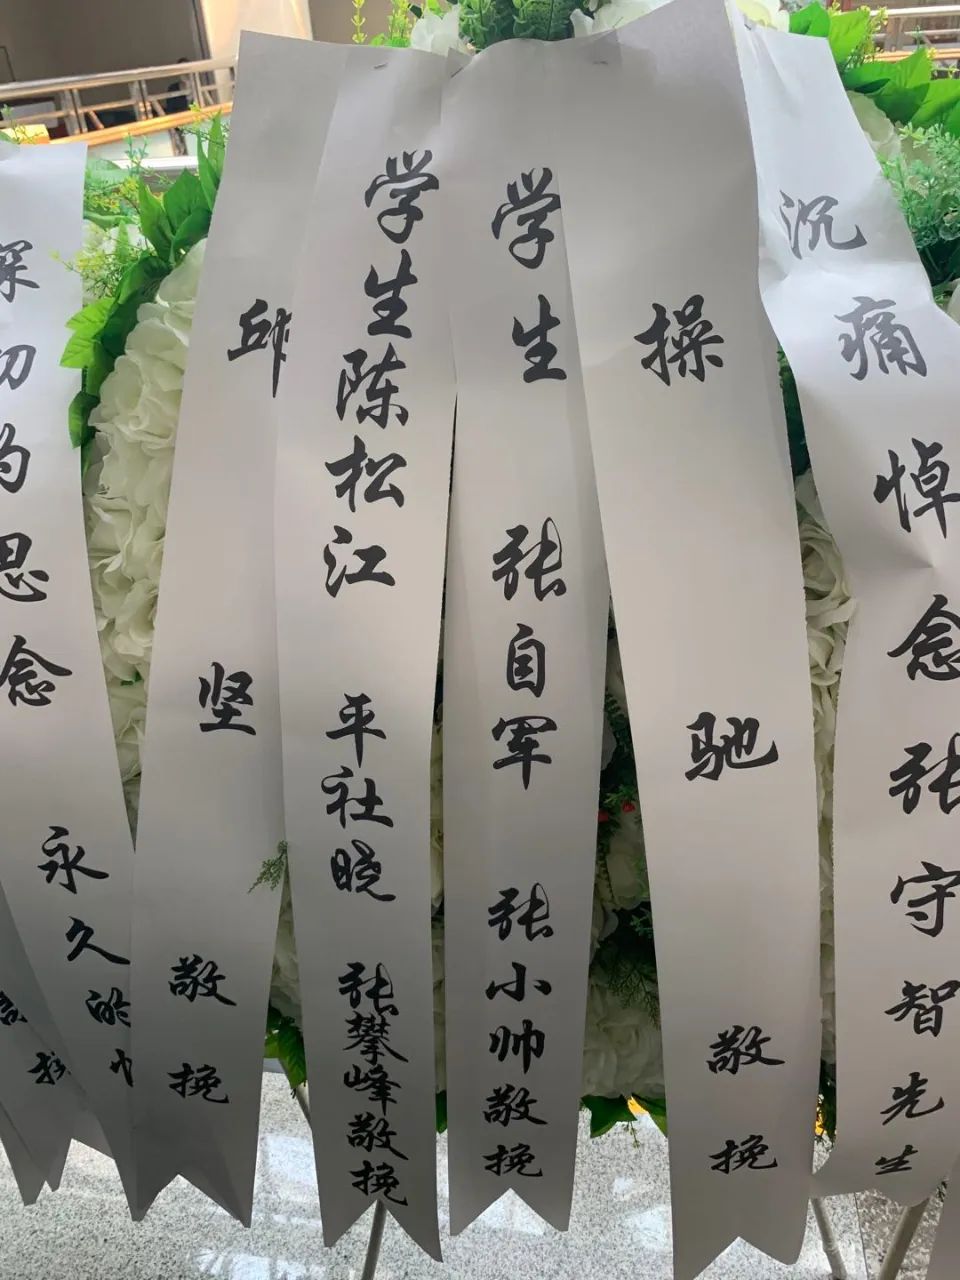 深切的思念
永久的
邱坚敬挽
学生陈松江 平社晓 张攀峰敬挽
学生 张自军 张小帅敬挽
操驰敬挽
沉痛悼念张守智先生